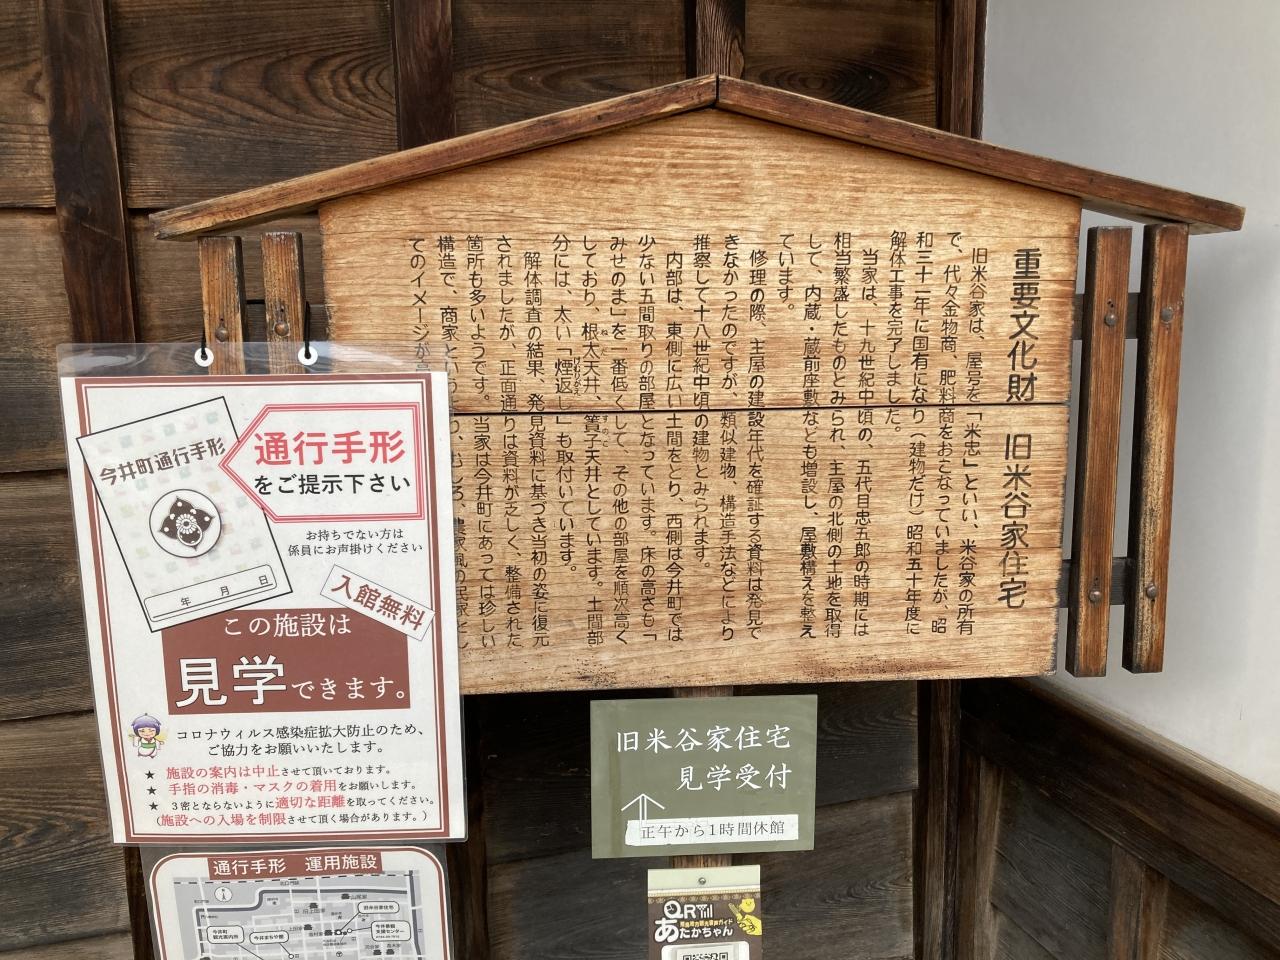 重要文化財　旧米谷家住宅
旧米谷家は、屋号を「米忠」といい、米谷家の所有
で、代々金物商、肥料商をおこなっていましたが、昭
和三十一年に国有になり（建物だけ）昭和五十年度に
解体工事を完了しました。
当家は、十九世紀中頃の、五代目忠五郎の時期には
相当繁盛したものとみられ、主屋の北側の土地を取得
して、内蔵・蔵前座敷なども増設し、屋敷構えを整え
ています。
修理の際、主屋の建設年代を確証する資料は発見で
きなかったのですが、類似建物、構造手法などにより
推察して十八世紀中頃の建物とみられます。
内部は、東側に広い土間をとり、西側は今井町では
少ない五間取りの部屋となっています。床の高さも「
みせのま」を一番低くして、その他の部屋を順次高く
しており、根太天井、簀子天井としています。土間部
分には、太い「煙返し」も取付いています。
解体調査の結果、発見資料に基づき当初の姿に復元
されましたが、正面通りは資料が乏しく、整備された
箇所も多いようです。当家は今井町にあっては珍しい
構造で、商家と
てのイメージが
今井町通行手形
年　月　日
通行手形
をご提示下さい
お持ちでない方は
係員にお声掛けください
入館無料
この施設は
見学できます。
コロナウィルス感染症拡大防止のため、
ご協力をお願いいたします。
★ 施設の案内は中止させて頂いております。
★ 手指の消毒・マスクの着用をお願いします。
★ 3密とならないように適切な距離を取ってください。
（施設への入場を制限させて頂く場合があります。）
通行手形　運用施設
旧米谷家住宅
見学受付
正午から1時間休館
QR
あたかちゃん